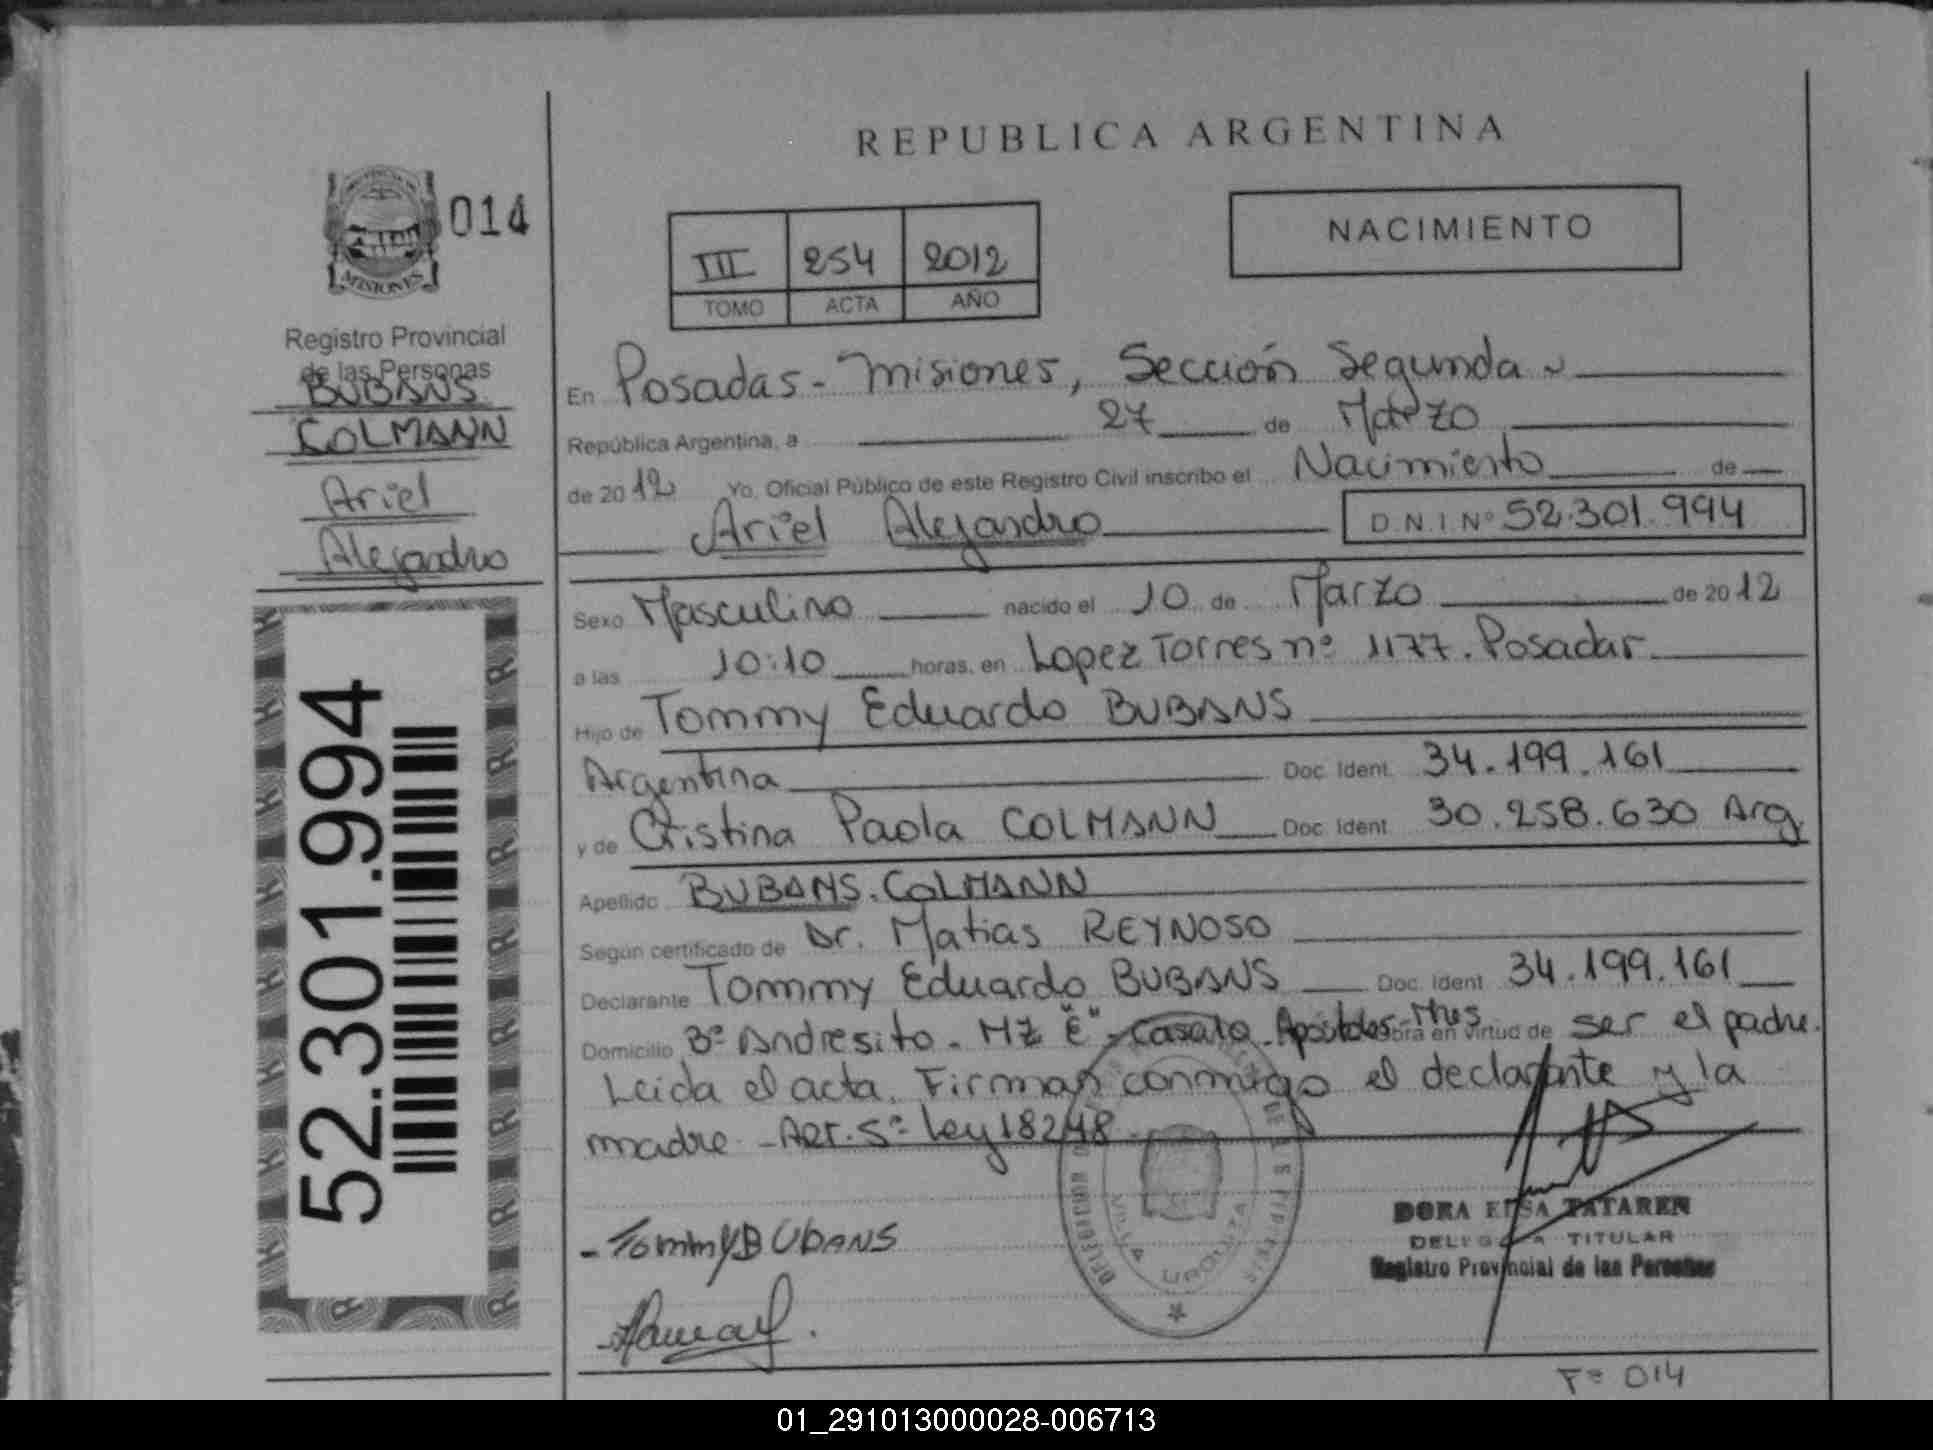 REPUBLICA ARGENTINA
014
MISIONES
NACIMIENTO
III 254 2012
TOMO ACTA AÑO
Registro Provincial
de las Personas
BUBANS
COLMANN
Ariel
Alejandro
52.301.994
En Posadas - Misiones, Sección Segunda
República Argentina, a 27 de Marzo
de 2012 Yo, Oficial Público de este Registro Civil inscribo el Nacimiento de
Ariel Alejandro D.N.I. Nº 52.301.994
Sexo Masculino nacido el 10 de Marzo de 2012
a las 10:10 horas, en Lopez Torres nº 1177. Posadas
Hijo de Tommy Eduardo BUBANS
Argentina Doc. Ident. 34.199.161
y de Cristina Paola COLMANN Doc. Ident. 30.258.630 Arg.
Apellido BUBANS. COLMANN
Según certificado de Dr. Matias REYNOSO
Declarante Tommy Eduardo BUBANS Doc. Ident. 34.199.161
Domicilio Bº Andresito - Mz "E" - Casa 10 - Apóstoles - Mnes obra en virtud de ser el padre.
Leida el acta. Firman conmigo el declarante y la
madre - Art. 5º Ley 18248
- Tommy BUbANS
DELEGACION
VILLA URQUIZA
DORA ELSA TATAREN
DELEGADA TITULAR
Registro Provincial de las Personas
Fº 014
01_291013000028-006713